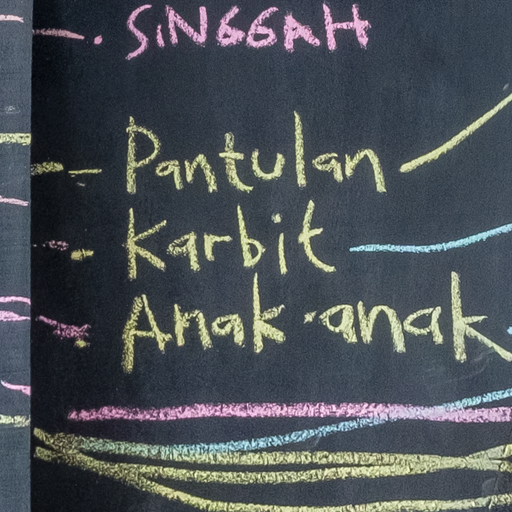 SINGGAH
Pantulan
Karbit
Anak-anak